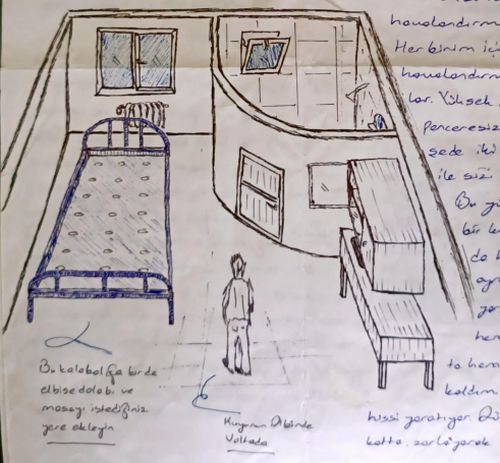 havalandırm
Her birim iç
havalandırm
lar. Yüksek
penceresiz
sede iki
ile sizi
Bu yü
bir k
da h
yer
hem
ta hem
kaldım.
hissi yaratıyor. Ü
katta, zorlayarak
Bu kalabalığa bir de
elbise dolabı ve
masayı istediğiniz
yere ekleyin
Kuyunun Dibinde
Voltada